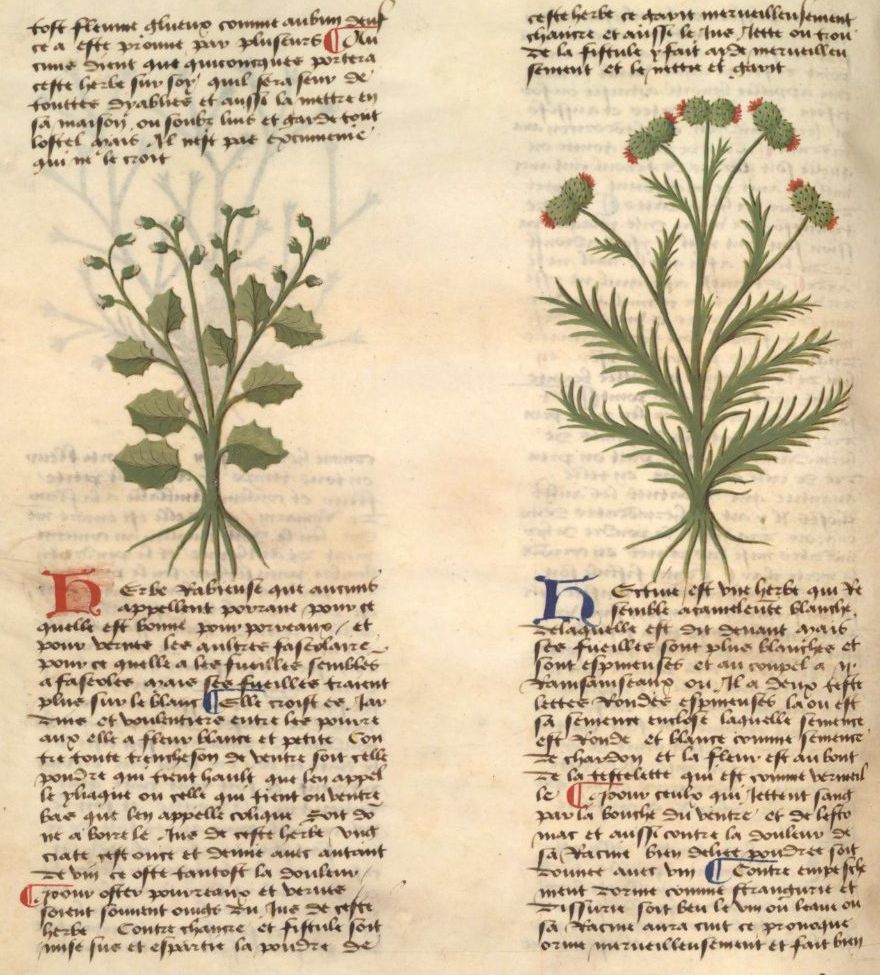 tost flemme glueux comme aubun deuf
ce a este prouue par pluseurs Au
cuns dient que quiconcques portera
ceste herbe sur soy quil sera seur de
touttes dyablies et aussi la mettre en
sa maison ou soubz luis et garde tout
lostel mais Il nest pas excumenie
qui ne le croit
Herbe Rabieuse que aucuns
appellent poraire pour ce
quelle est bonne pour porreaux et
pour verrues les aultres faseolaire
pour ce quelle a les fueilles semblés
a faseoles mais ses fueilles traient
plus sur le blanc Elle croist es Jar
dins et voulentiers entre les poure
aux elle a fleur blance et petite Con
tre toute trencheson de ventre soit celle
poudre qui tient hault que len appel
le yliaque ou celle qui tient ou ventre
bas que len appelle colique Soit do
ne a boire le Jus de ceste herbe vng
ciate cest once et demie auec autant
de vin ce oste tantost la douleur
pour oster pourreaux et verrues
soient souuent oings du Jus de ceste
herbe Contre chancre et fistule soit
mise sus et espartie la poudre de
ceste herbe ce garit merueilleusement
chancre et aussi le Jus Jette ou trou
de la fistule y fait ayde merueilleu
sement et le nettie et garit
Hectine est vne herbe qui Re
semble a cameleute blanche
delaquelle est dit deuant mais
ses fueilles sont plus blanches et
sont espineuses et au coupel a ij
Ramsainseaux ou Il a deux teste
lettes Rondes espineuses la ou est
sa semence enclose laquelle semence
est Ronde et blance comme semence
de chardon et la fleur est au bout
de la testelette qui est comme vermeil
le pour ceulx qui Jettent sang
par la bouche du ventre et de lesto
mac et aussi contre la douleur de
sa Racine bien deliee poudree soit
donnee auec vin Contre empesche
ment dorine comme strangurie et
dissurie soit beu le vin ou leaue ou
sa Racine aura cuit ce prouoque
orine merueilleusement et fait bien